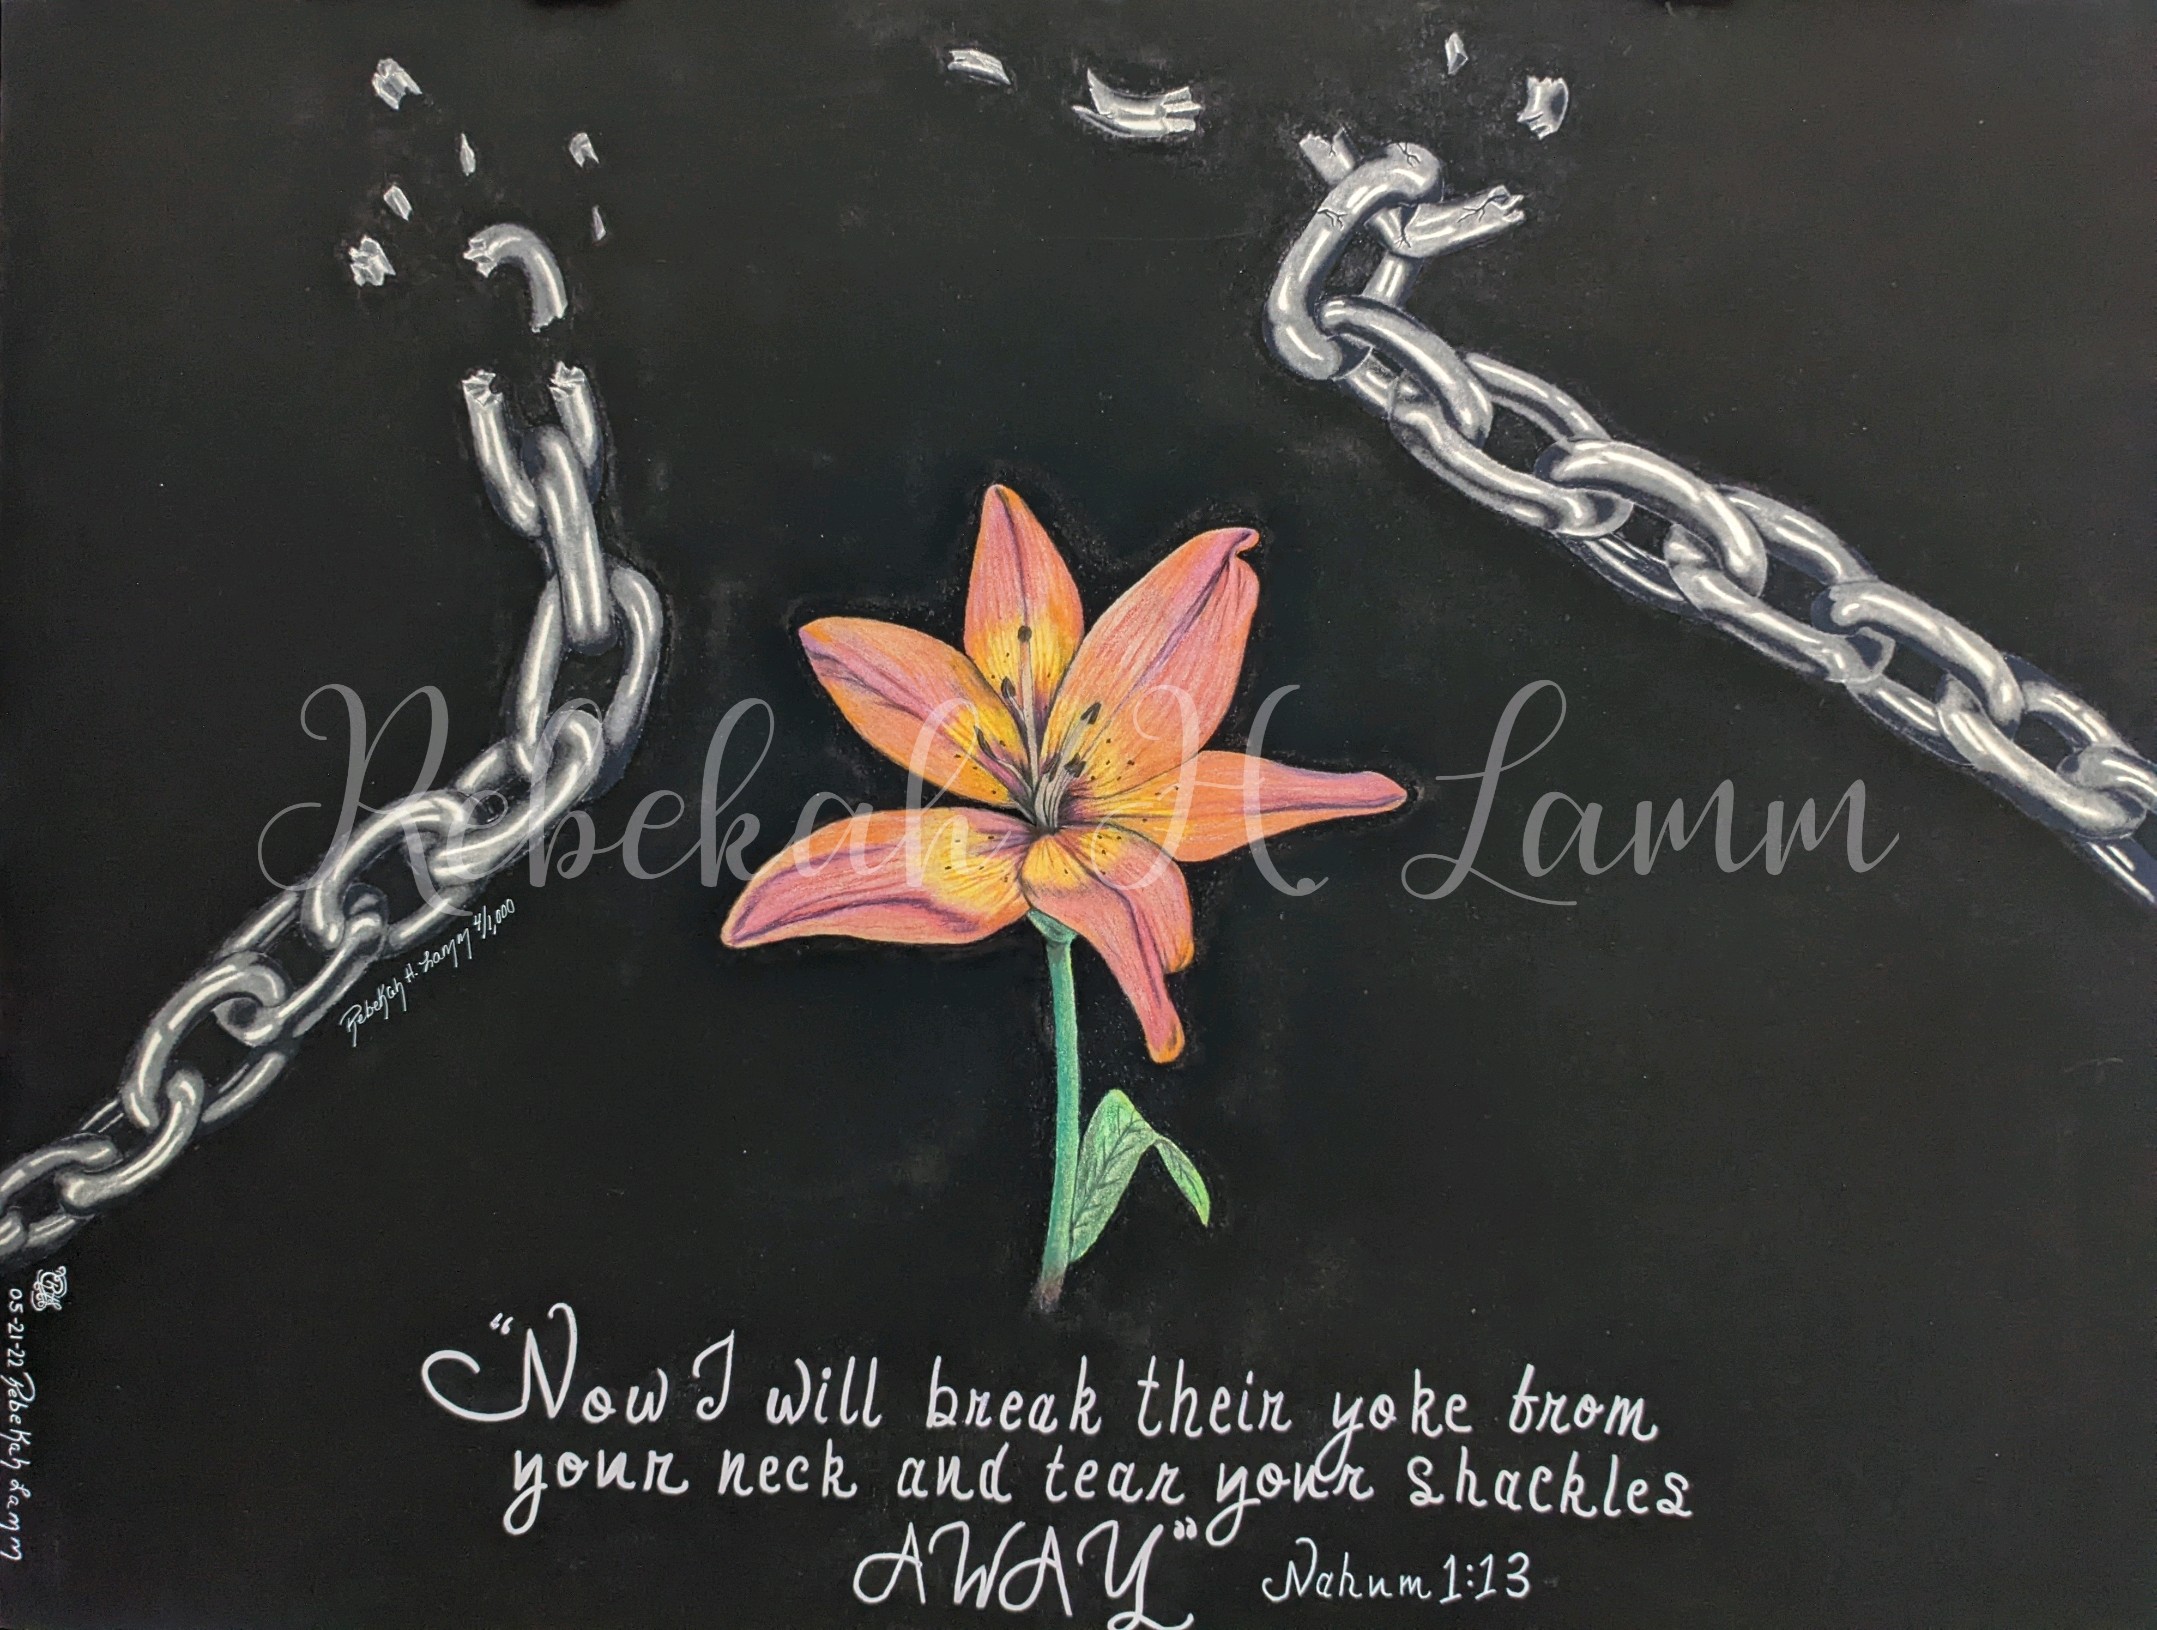 Rebekah H. Lamm
Rebekah H. Lamm 4/1,000
05-21-22 Rebekah Lamm
"Now I will break their yoke from
your neck and tear your shackles
AWAY" Nahum 1:13